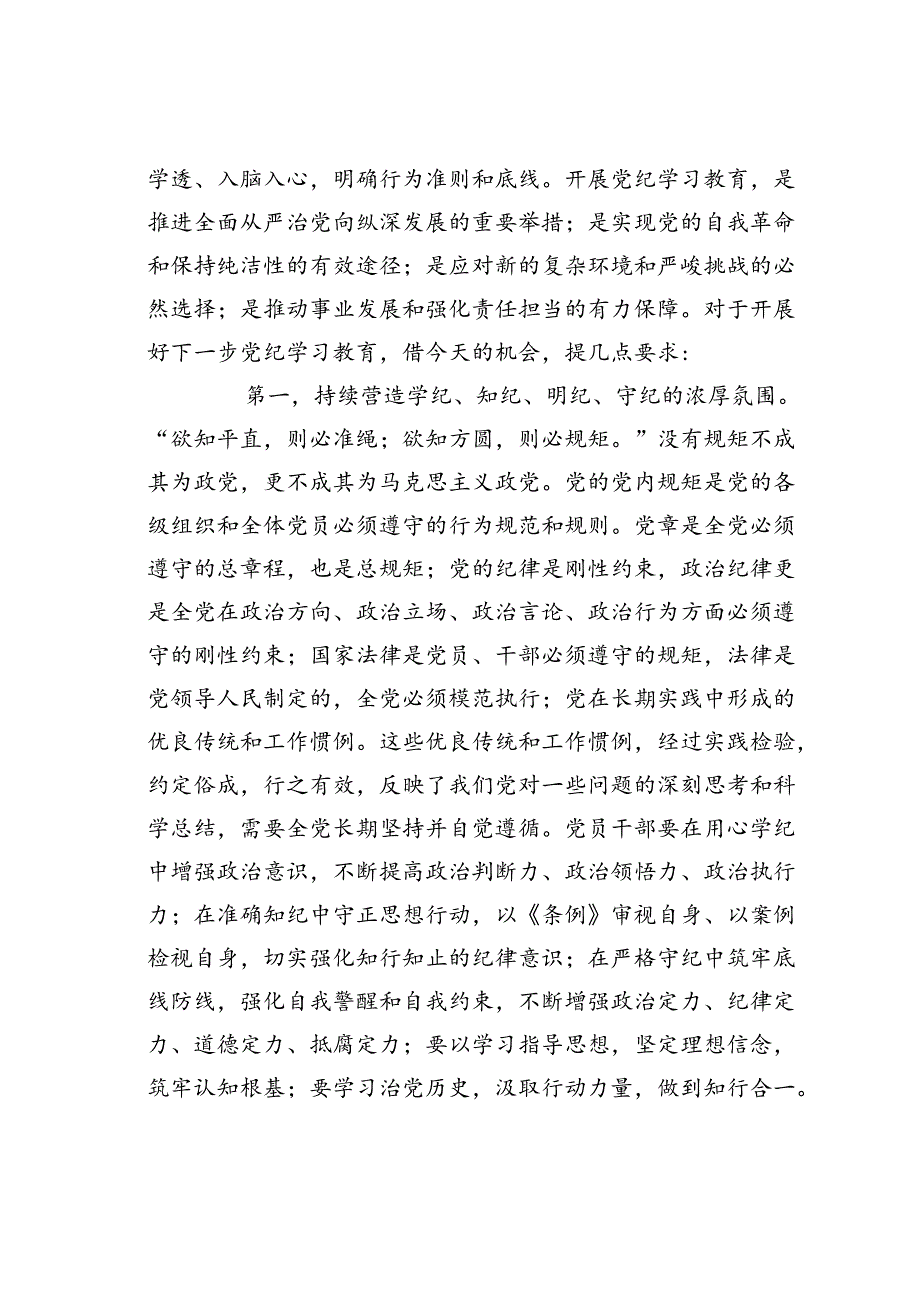 学透、入脑入心，明确行为准则和底线。开展党纪学习教育，是
推进全面从严治党向纵深发展的重要举措；是实现党的自我革命
和保持纯洁性的有效途径；是应对新的复杂环境和严峻挑战的必
然选择；是推动事业发展和强化责任担当的有力保障。对于开展
好下一步党纪学习教育，借今天的机会，提几点要求：
第一，持续营造学纪、知纪、明纪、守纪的浓厚氛围。
“欲知平直，则必准绳；欲知方圆，则必规矩。”没有规矩不成
其为政党，更不成其为马克思主义政党。党的党内规矩是党的各
级组织和全体党员必须遵守的行为规范和规则。党章是全党必须
遵守的总章程，也是总规矩；党的纪律是刚性约束，政治纪律更
是全党在政治方向、政治立场、政治言论、政治行为方面必须遵
守的刚性约束；国家法律是党员、干部必须遵守的规矩，法律是
党领导人民制定的，全党必须模范执行；党在长期实践中形成的
优良传统和工作惯例。这些优良传统和工作惯例，经过实践检验，
约定俗成，行之有效，反映了我们党对一些问题的深刻思考和科
学总结，需要全党长期坚持并自觉遵循。党员干部要在用心学纪
中增强政治意识，不断提高政治判断力、政治领悟力、政治执行
力；在准确知纪中守正思想行动，以《条例》审视自身、以案例
检视自身，切实强化知行知止的纪律意识；在严格守纪中筑牢底
线防线，强化自我警醒和自我约束，不断增强政治定力、纪律定
力、道德定力、抵腐定力；要以学习指导思想，坚定理想信念，
筑牢认知根基；要学习治党历史，汲取行动力量，做到知行合一。